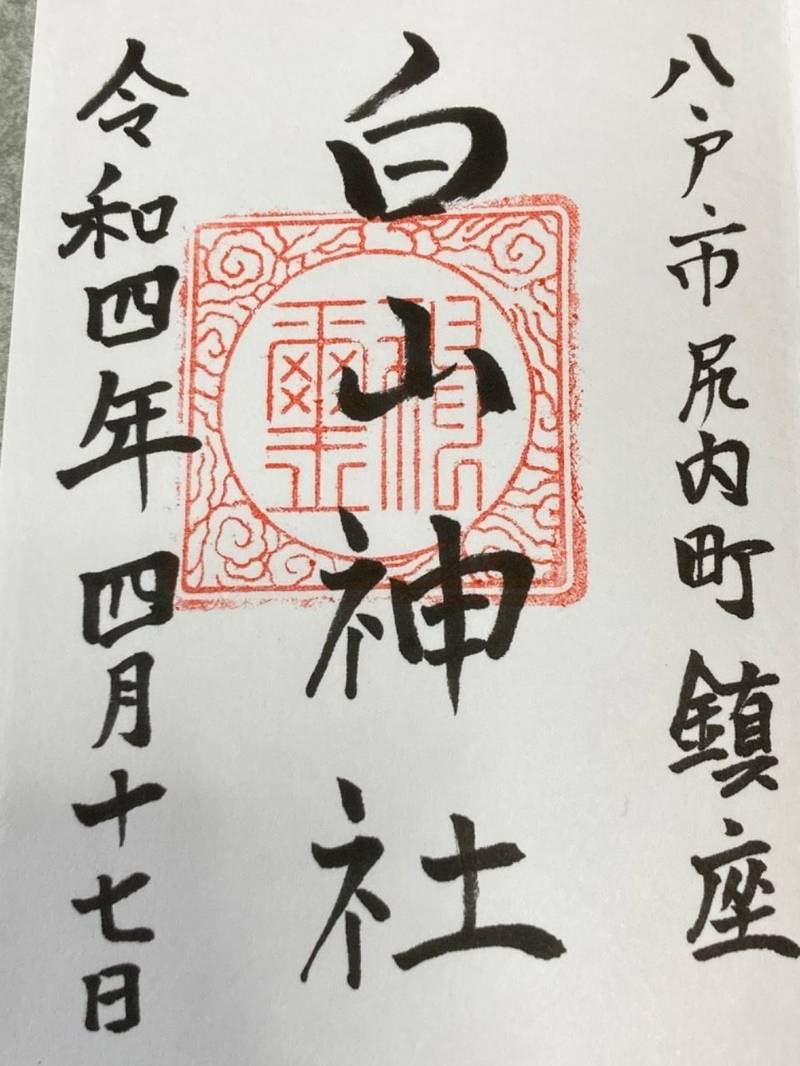 八戸市尻内町鎮座
白山神社
令和四年四月十七日